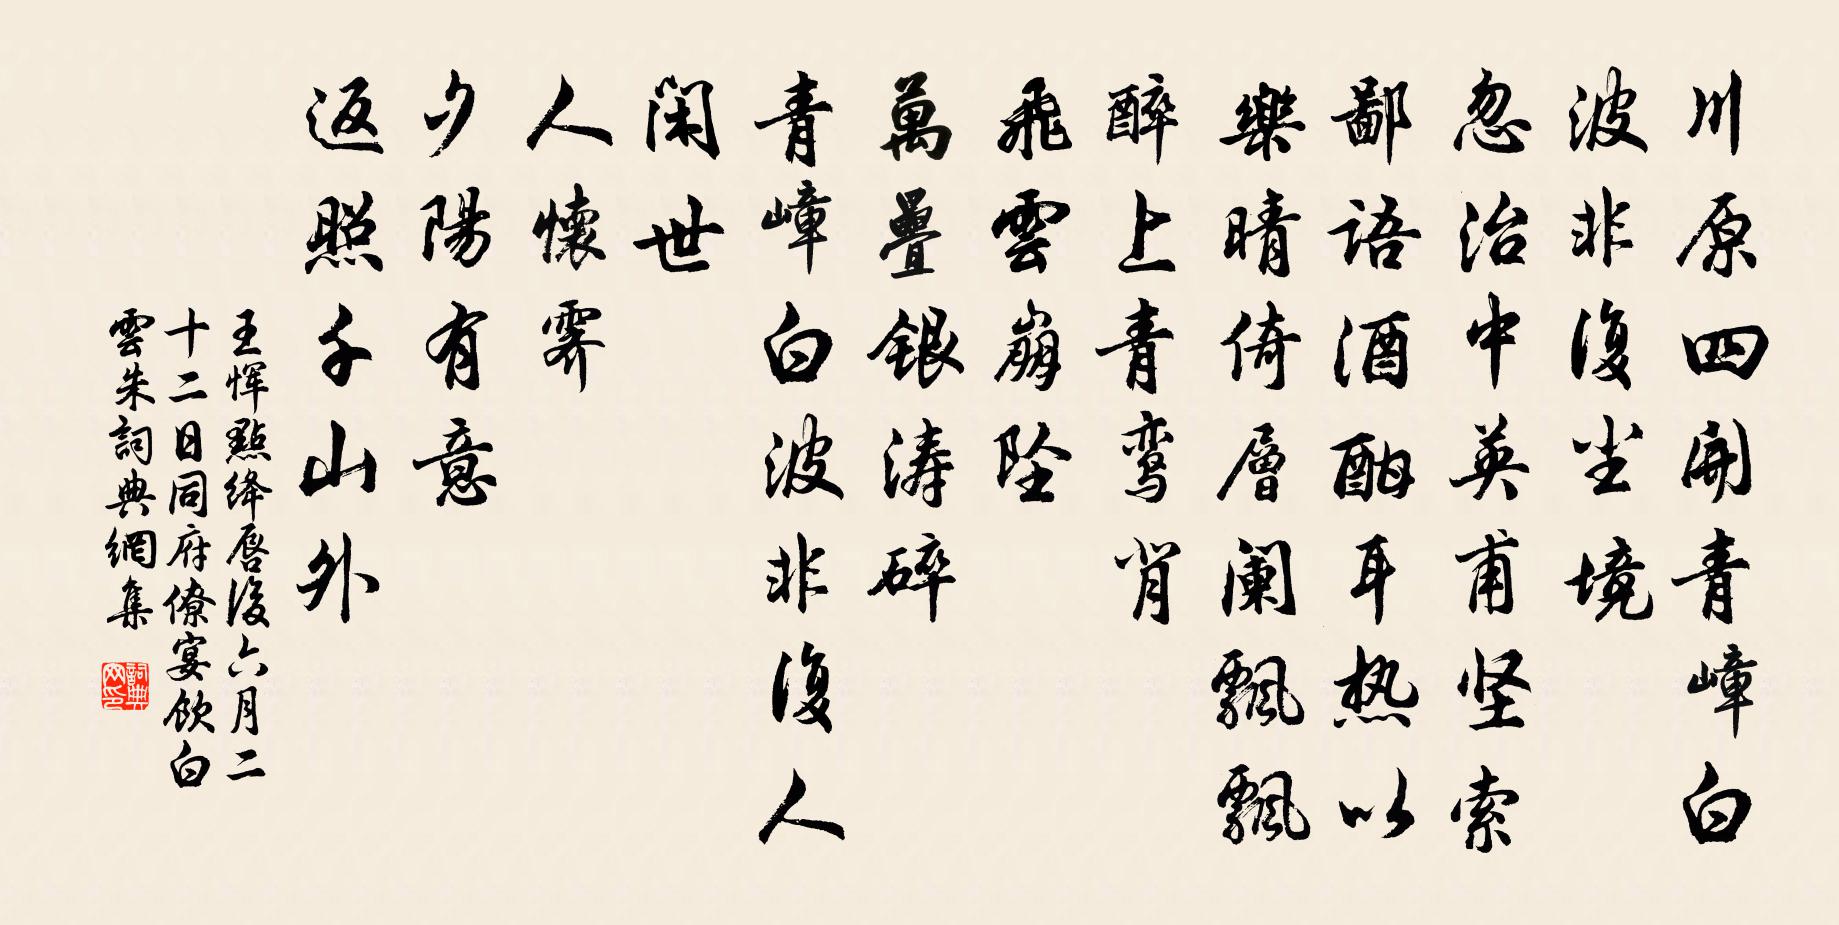 川原四開青嶂白
波非復尘境
忽治中英甫坚索
鄙語酒酣耳热以
樂晴倚層阑飄飄
醉上青鸾背
飛雲崩坠
萬疊銀涛碎
青嶂白波非復人
闲世
人懷霽
夕陽有意
返照千山外
王恽點绛唇後六月二
十二日同府僚宴飲白
雲朱詞典網集
詞典
网印